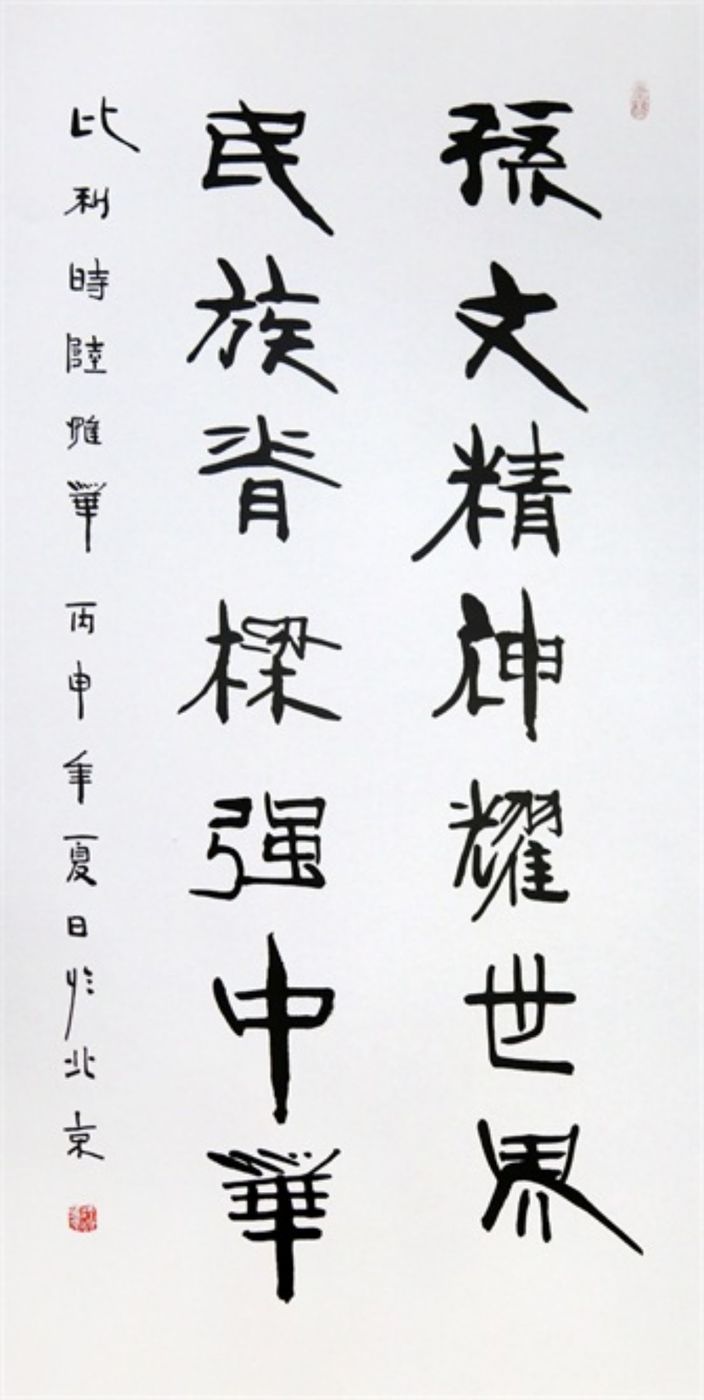 孫文精神耀世界
民族脊樑强中華
比利時陸惟華 丙申年夏日於北京